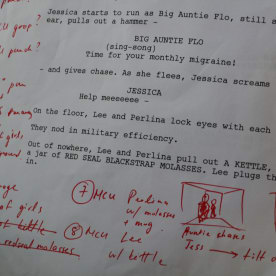 Jessica starts to run as Big Auntie Flo, still s
ear, pulls out a hammer -
BIG AUNTIE FLO
(sing-song)
Time for your monthly migraine!
- and gives chase. As she flees, Jessica screams
JESSICA
Help meeeeeee -
On the floor, Lee and Perlina lock eyes with each
They nod in military efficiency.
Out of nowhere, Lee and Perlina pull out A KETTLE,
a jar of RED SEAL BLACKSTRAP MOLASSES. Lee plugs th
in.
7 MCU Perlina
w/ molasses
+ mug
8 MCU Lee
w/ kettle
of girls
kettle
molasses
Auntie chases
Jess → tilt